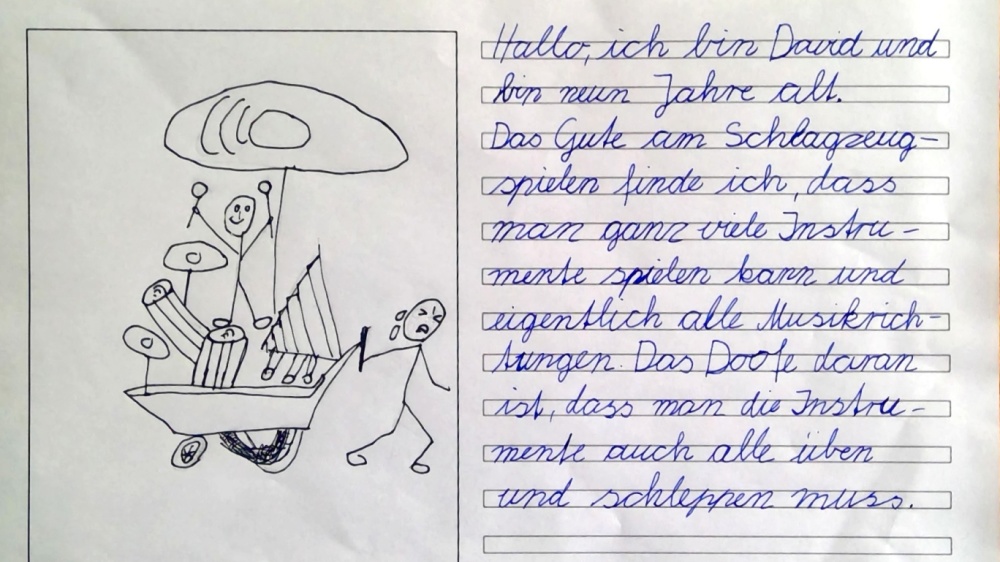 Hallo, ich bin David und
bin neun Jahre alt.
Das Gute am Schlagzeug-
spielen finde ich, dass
man ganz viele Instru-
mente spielen kann und
eigentlich alle Musikrich-
tungen. Das Doofe daran
ist, dass man die Instru-
mente auch alle üben
und schleppen muss.